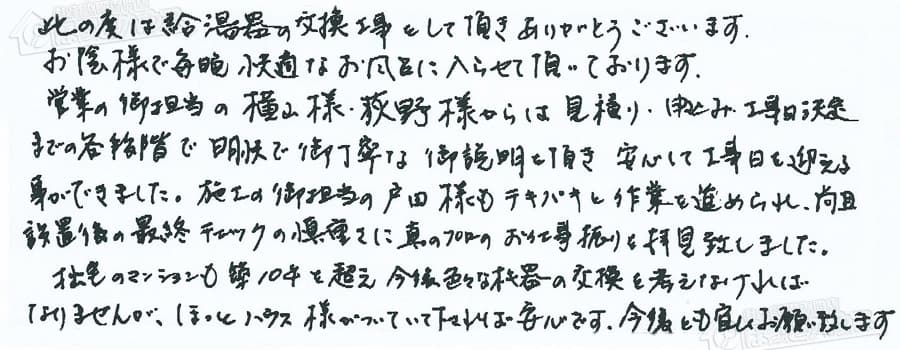 此の度は給湯器の交換工事をして頂きありがとうございます.
お陰様で毎晩快適なお風呂に入らせて頂いております.
営業の御担当の横山様・荻野様からは見積り・申込み・工事日決定
までの各段階で明快で御丁寧な御説明を頂き安心して工事日を迎える
事ができました。施工の御担当の戸田様もテキパキと作業を進められ、尚且
設置後の最終チェックの慎重さに真のプロのお仕事振りを拝見致しました。
拙宅のマンションも築10年を超え今後色々な機器の交換を考えなければ
なりませんが、ほっとハウス様がついていて下されば安心です.今後とも宜しくお願い致します